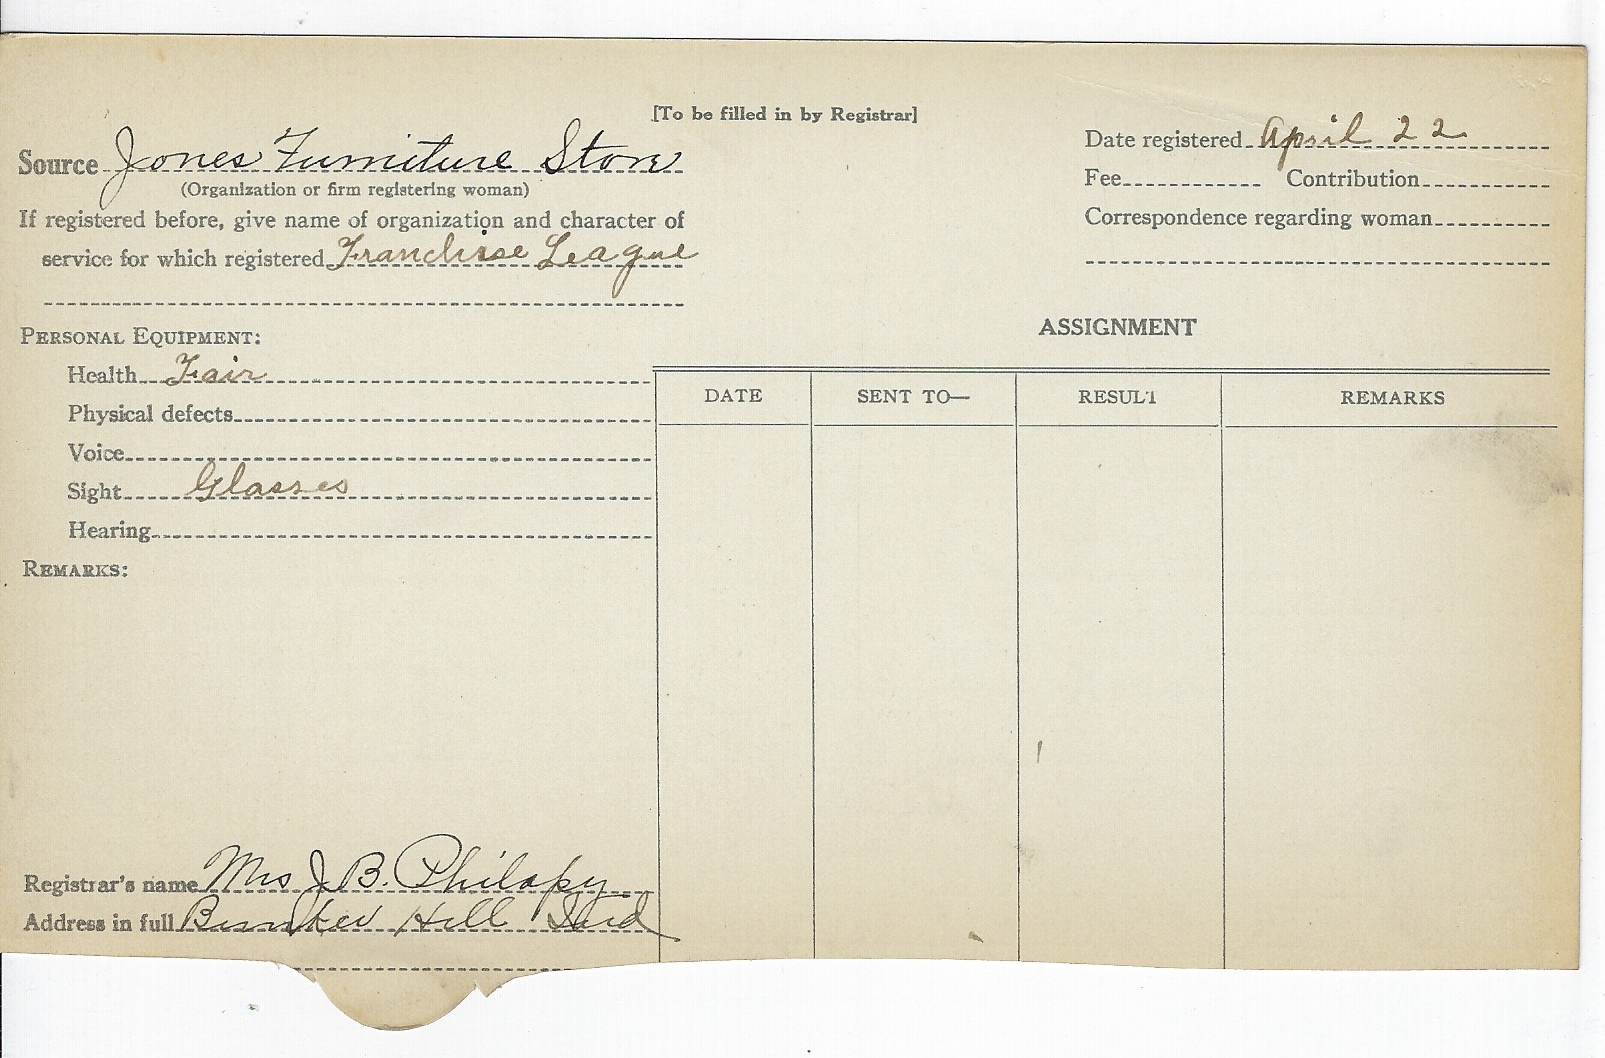 [To be filled in by Registrar]
Source Jones Furniture Store
(Organization or firm registering woman)
If registered before, give name of organization and character of
service for which registered Franchise League
Date registered April 22
Fee Contribution
Correspondence regarding woman
PERSONAL EQUIPMENT:
Health Fair
Physical defects
Voice
Sight Glasses
Hearing
REMARKS:
ASSIGNMENT
DATE SENT TO— RESULT REMARKS
Registrar's name Mrs J B. Philapy
Address in full Bunker Hill Ind